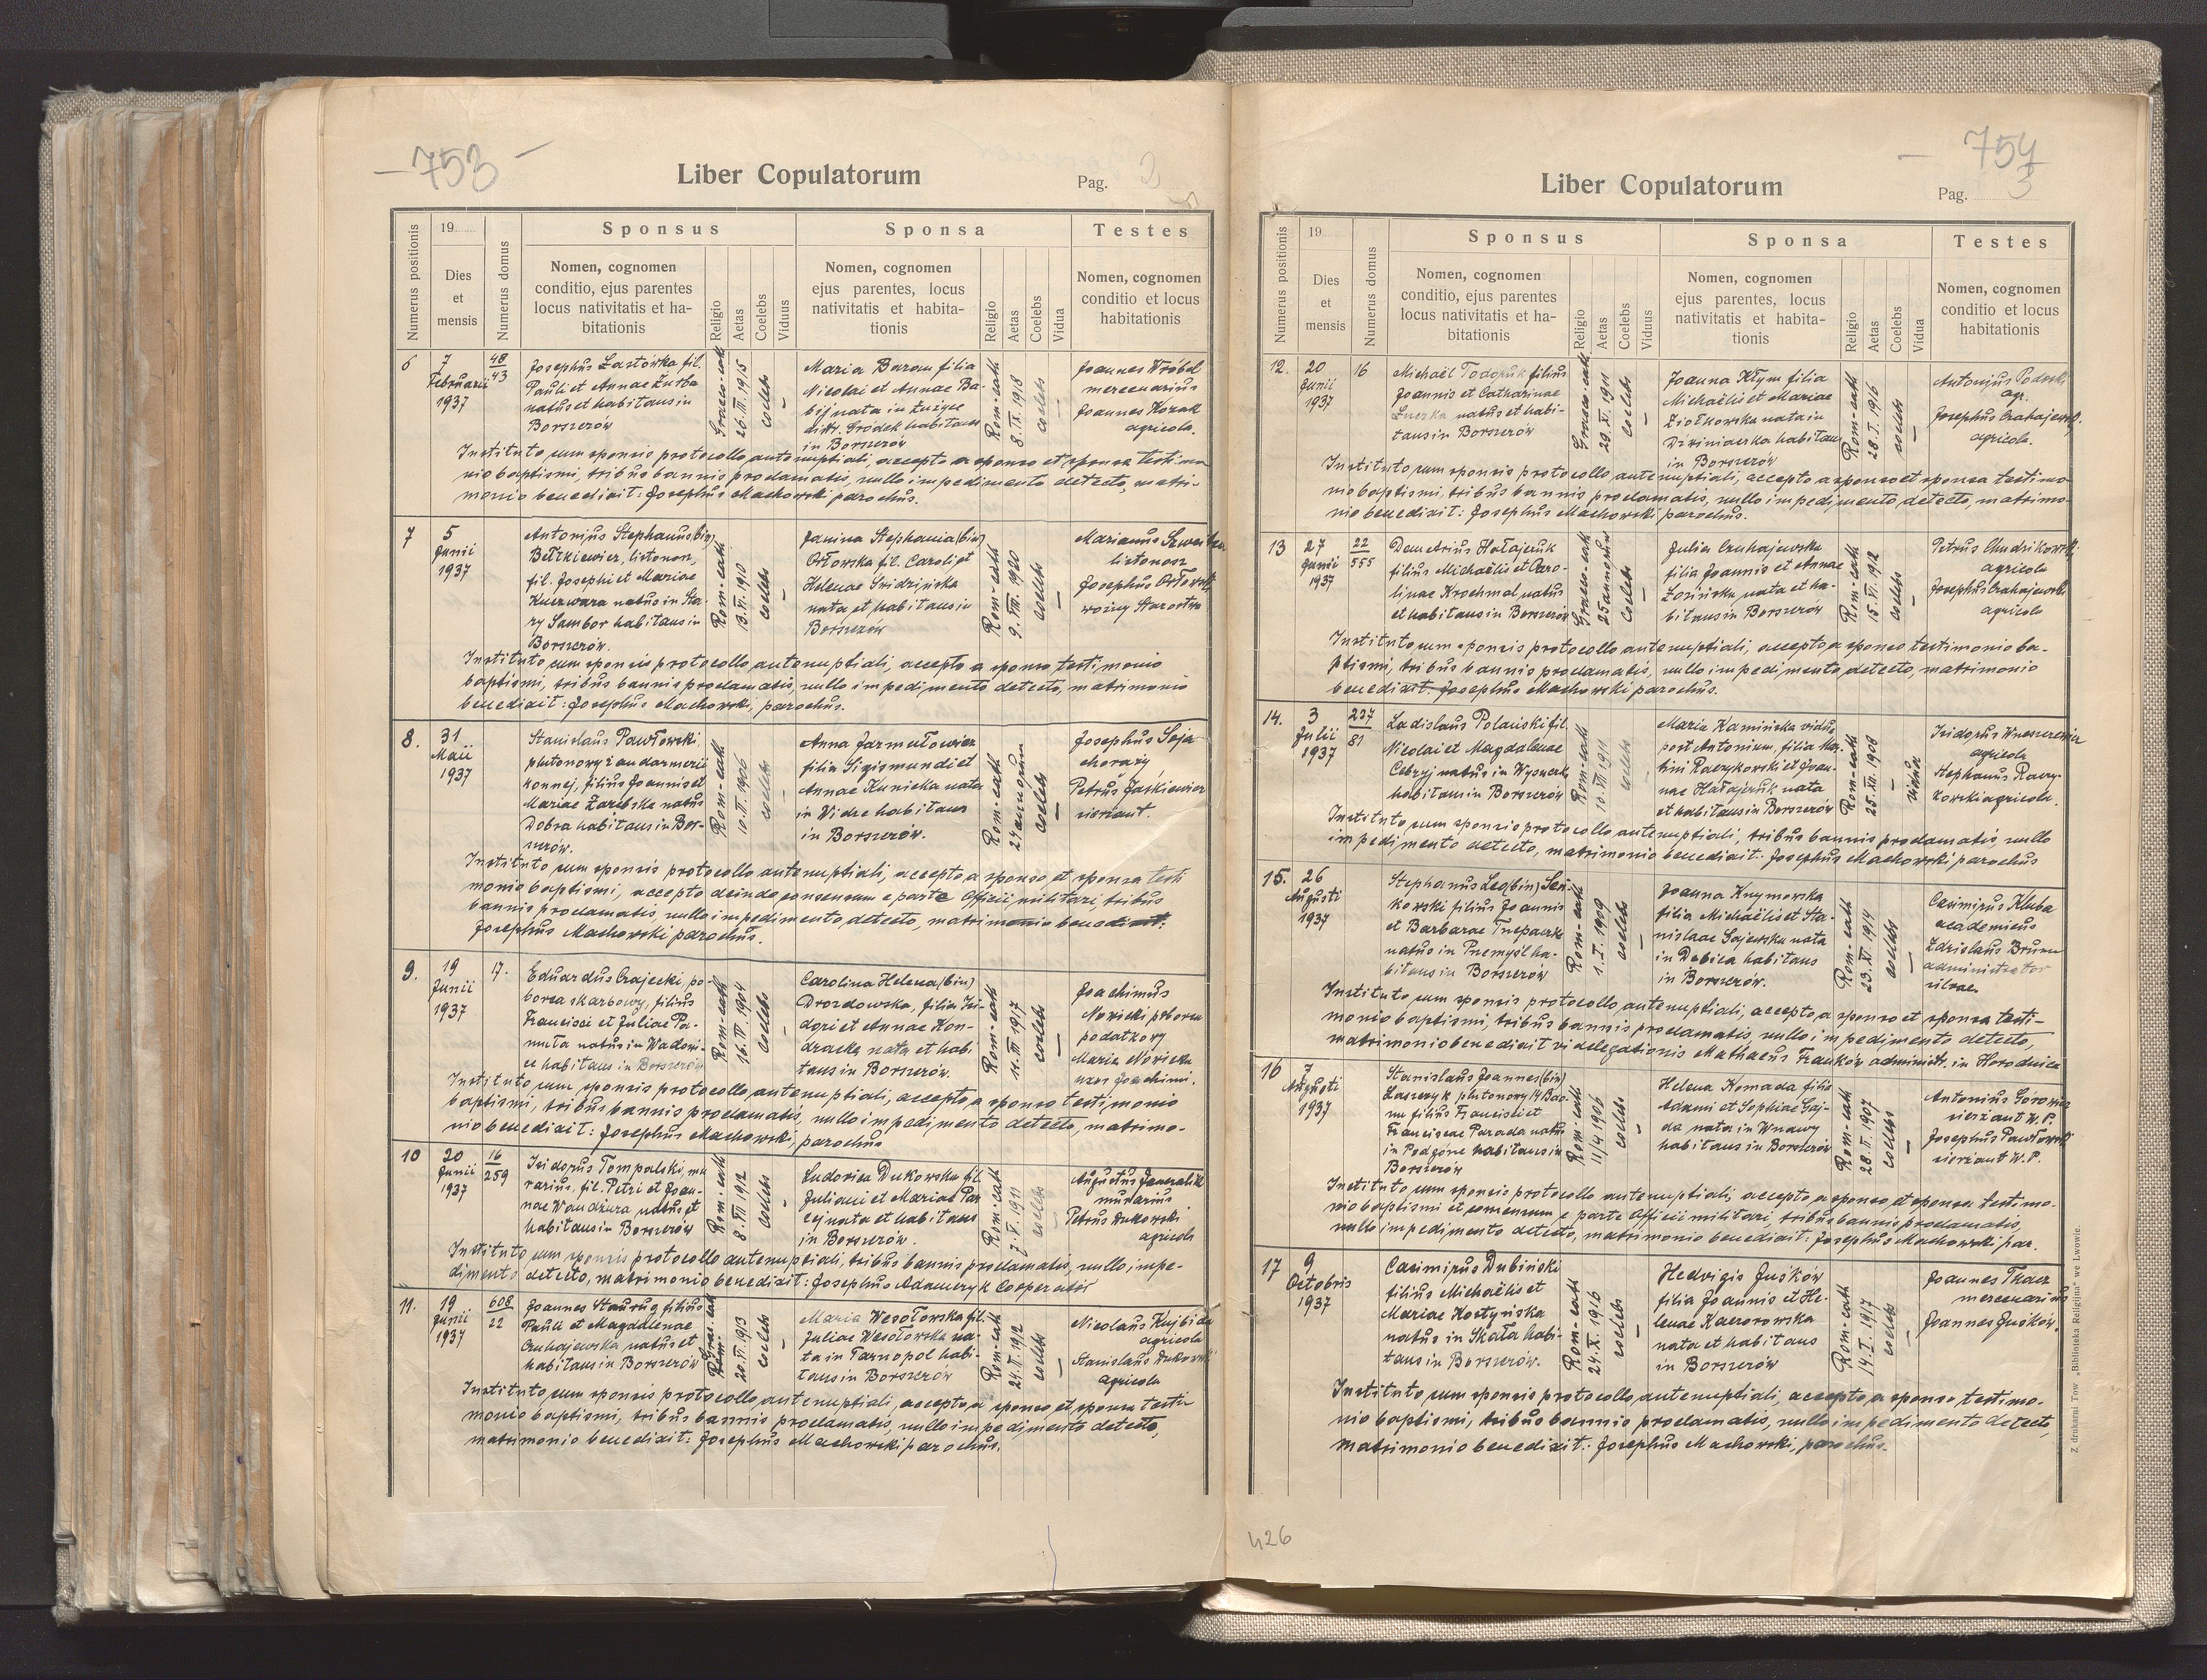 — 753 —
Liber Copulatorum
Pag. 2
Numerus positionis
19
Dies
et
mensis
Numerus domus
Sponsus
Nomen, cognomen
conditio, ejus parentes
locus nativitatis et ha-
bitationis
Religio
Aetas
Coelebs
Viduus
Sponsa
Nomen, cognomen
ejus parentes, locus
nativitatis et habita-
tionis
Religio
Aetas
Coelebs
Vidua
Testes
Nomen, cognomen
conditio et locus
habitationis
6
7
Februarii
1937
48
43
Josephus Lastówka fil.
Pauli et Annae Żurba
natus et habitans in
Borszczów
Graeco-cath
26.III.1915
coelebs
—
Maria Baran filia
Nicolai et Annae Ba-
bij nata in
distr. Gródek habitans
in Borszczów
Rom-cath
8.IX.1918
coelebs
—
Joannes Wróbel
mercenarius
Joannes Kozak
agricola.
Instituto cum sponsis protocollo antenuptiali, accepto a sponso et sponsa testimo
nio baptismi, tribus bannis proclamatis, nullo impedimento detecto, matri-
monio benedixit: Josephus Machowski parochus.
7
5
Junii
1937
Antonius Stephanus (bin)
Bełtkiewicz, listonosz,
fil. Josephi et Mariae
Kuczwara natus in Sta-
ry Sambor habitans in
Borszczów.
Rom-cath
13.VI.1910
coelebs
—
Janina Stephania (bin)
Orłowska fil. Caroli et
Helenae
nata et habitans in
Borszczów
Rom-cath
9.VIII.1920
coelebs
—
Marianus
listonosz
Josephus Orłowski
woźny Starostwa
Instituto cum sponsis protocollo antenuptiali, accepto a sponso testimonio
baptismi, tribus bannis proclamatis, nullo impedimento detecto, matrimonio
benedixit: Josephus Machowski, parochus.
8.
31
Maii
1937
Stanislaus Pawłowski
plutonowy żandarmerii
konnej, filius Joannis et
Mariae Zarębska natus
Dobra habitans in Bor-
szczów.
Rom-cath
10.II.1906
coelebs
—
Anna Jarmułowicz
filia Sigismundi et
Annae Kunicka nata
in Vidze habitans
in Borszczów.
Rom-cath
24 annorum
coelebs
—
Josephus Soja
chorąży
Petrus Jaśkiewicz
sierżant.
Instituto cum sponsis protocollo antenuptiali, accepto a sponso et sponsa testi
monio baptismi, accepto deinde consensum e parte Officii militari tribus
bannis proclamatis, nullo impedimento detecto, matrimonio benedixit:
Josephus Machowski parochus.
9.
19
Junii
1937
17.
Eduardus Czajecki, po-
borca skarbowy, filius
Francisci et Juliae Pa-
muła natus in Wadowi-
ce habitans in Borszczów
Rom-cath
16.IV.1904
coelebs
—
Carolina Helena (bin)
Drozdowska, filia Isi-
dori et Annae Kon-
dracka nata et habi
tans in Borszczów.
Rom-cath
14.III.1917
coelebs
—
Joachimus
Nowicki poborca
podatkowy
Maria Nowicka
uxor Joachimi.
Instituto cum sponsis protocollo antenuptiali, accepto a sponso testimonio
baptismi, tribus bannis proclamatis, nullo impedimento detecto, matrimo-
nio benedixit: Josephus Machowski, parochus
10
20
Junii
1937
16
259
Isidorus Tompalski, mu
rarius, fil. Petri et Joan-
nae Wandzura natus et
habitans in Borszczów
Rom-cath
8.III.1912
coelebs
—
Ludovica Dukowska fil.
Juliani et Mariae Par
cej nata et habitans
in Borszczów.
Rom-cath
7.V.1911
coelebs
Augustus
murarius
Petrus Dukowski
agricola
Instituto cum sponsis protocollo antenuptiali, tribus bannis proclamatis, nullo impe-
dimento detecto, matrimonio benedixit: Josephus Adamczyk Cooperator
11.
19
Junii
1937
608
22
Joannes Staurug filius
Pauli et Magdalenae
Czuhajewska natus et
habitans in Borszczów
Graec-cath
20.VI.1913
coelebs
—
Maria Wesołowska fil.
Juliae Wesołowska na-
ta in Tarnopol habi-
tans in Borszczów
Rom-cath
24.II.1912
coelebs
—
Nicolaus Kujbida
agricola
Stanislaus Dukowski
agricola
Instituto cum sponsis protocollo antenuptiali, accepto a sponso et sponsa testi-
monio baptismi, tribus bannis proclamatis, nullo impedimento detecto,
matrimonio benedixit: Josephus Machowski parochus.
— 754
Liber Copulatorum
Pag. 3
Numerus positionis
19
Dies
et
mensis
Numerus domus
Sponsus
Nomen, cognomen
conditio, ejus parentes
locus nativitatis et ha-
bitationis
Religio
Aetas
Coelebs
Viduus
Sponsa
Nomen, cognomen
ejus parentes, locus
nativitatis et habita-
tionis
Religio
Aetas
Coelebs
Vidua
Testes
Nomen, cognomen
conditio et locus
habitationis
12.
20
Junii
1937
16
Michaël Todoruk filius
Joannis et Catharinae
natus et habi-
tans in Borszczów
Graeco-cath
29.XI.1911
coelebs
—
Joanna Kłym filia
Michaëlis et Mariae
Ziołkowska nata in
habitans
in Borszczów
Rom-cath
28.I.1916
coelebs
—
Antonius
agr.
Josephus Czuhajewski.
agricola.
Instituto cum sponsis protocollo antenuptiali, accepto a sponso et sponsa testimo
nio baptismi, tribus bannis proclamatis, nullo impedimento detecto, matrimo-
nio benedixit: Josephus Machowski parochus.
13
27
Junii
1937
22
555
Demetrius Hołajczuk
filius Michaëlis et Caro-
linae Krochmal natus
et habitans in Borszczów
Graeco-cath
25 annorum
coelebs
—
Julia Czuhajewska
filia Joannis et Annae
Łozińska nata et ha-
bitans in Borszczów
Rom-cath
15.VI.1912
coelebs
—
Petrus Chudzikowski
agricola
Josephus Czuhajewski
agricola
Instituto cum sponsis protocollo antenuptiali, accepto a sponso testimonio ba-
ptismi, tribus bannis proclamatis, nullo impedimento detecto, matrimonio
benedixit: Josephus Machowski parochus.
14.
3
Julii
1937
237
81
Ladislaus Polański fil.
Nicolai et Magdalenae
Cebryj natus in Wysuczk
habitans in Borszczów
Rom-cath
10.VII.1911
coelebs
Maria Kamińska vidua
post Antonium, filia Mar
tini Raczykowski et Joan-
nae Hołajczuk nata
et habitans in Borszczów
Rom-cath
25.XII.1908
—
vidua
Isidorus
agricola
Stephanus Raczy-
kowski agricola.
Instituto cum sponsis protocollo antenuptiali, tribus bannis proclamatis, nullo
impedimento detecto, matrimonio benedixit: Josephus Machowski parochus
15.
26
Augusti
1937
Stephanus Leo (bin) Sen-
kowski filius Joannis
et Barbarae
natus in Przemyśl ha-
bitans in Borszczów
Rom-cath
1.I.1909
coelebs
—
Joanna Krzymowska
filia Michaëlis et Sta-
nislaae Gajewska nata
in Dębica habitans
in Borszczów.
Rom-cath
23.XI.1914
coelebs
—
Casimirus Kluba
academicus
Zdzislaus Brunn
administrator
silvae.
Instituto cum sponsis protocollo antenuptiali, accepto a sponso et sponsa testi-
monio baptismi, tribus bannis proclamatis, nullo impedimento detecto,
matrimonio benedixit vi delegationis Mathaeus Franków administ. in Horodnica
16
7
Augusti
1937
Stanislaus Joannes (bin)
Laszczyk plutonowy 14 Bao-
nu filius Francisci et
Franciscae Parada natus
in Podgórze habitans in
Borszczów
Rom-cath
11/4 1906
coelebs
—
Helena Komada filia
Adami et Sophiae Gaj-
da nata in Wnawy
habitans in Borszczów
Rom-cath
28.II.1907
coelebs
—
Antonius
sierżant W.P.
Josephus Pawłowski
sierżant W.P.
Instituto cum sponsis protocollo antenuptiali, accepto a sponso et sponsa testimo-
nio baptismi et consensum e parte Officii militari, tribus bannis proclamatis,
nullo impedimento detecto, matrimonio benedixit: Josephus Machowski par.
17
9
Octobris
1937
Casimirus Dubiński
filius Michaëlis et
Mariae Kostyńska
natus in Skała habi-
tans in Borszczów.
Rom-cath
24.X.1916
coelebs
—
Hedvigis Juśków
filia Joannis et He-
lenae Kaczorowska
nata et habitans
in Borszczów
Rom-cath
14.I.1917
coelebs
—
Joannes Tkacz
mercenarius
Joannes Juśków.
Instituto cum sponsis protocollo antenuptiali, accepto a sponso testimo-
nio baptismi, tribus bannis proclamatis, nullo impedimento detecto,
matrimonio benedixit: Josephus Machowski, parochus.
Z drukarni Tow. „Bibljoteka Religijna" we Lwowie.
426